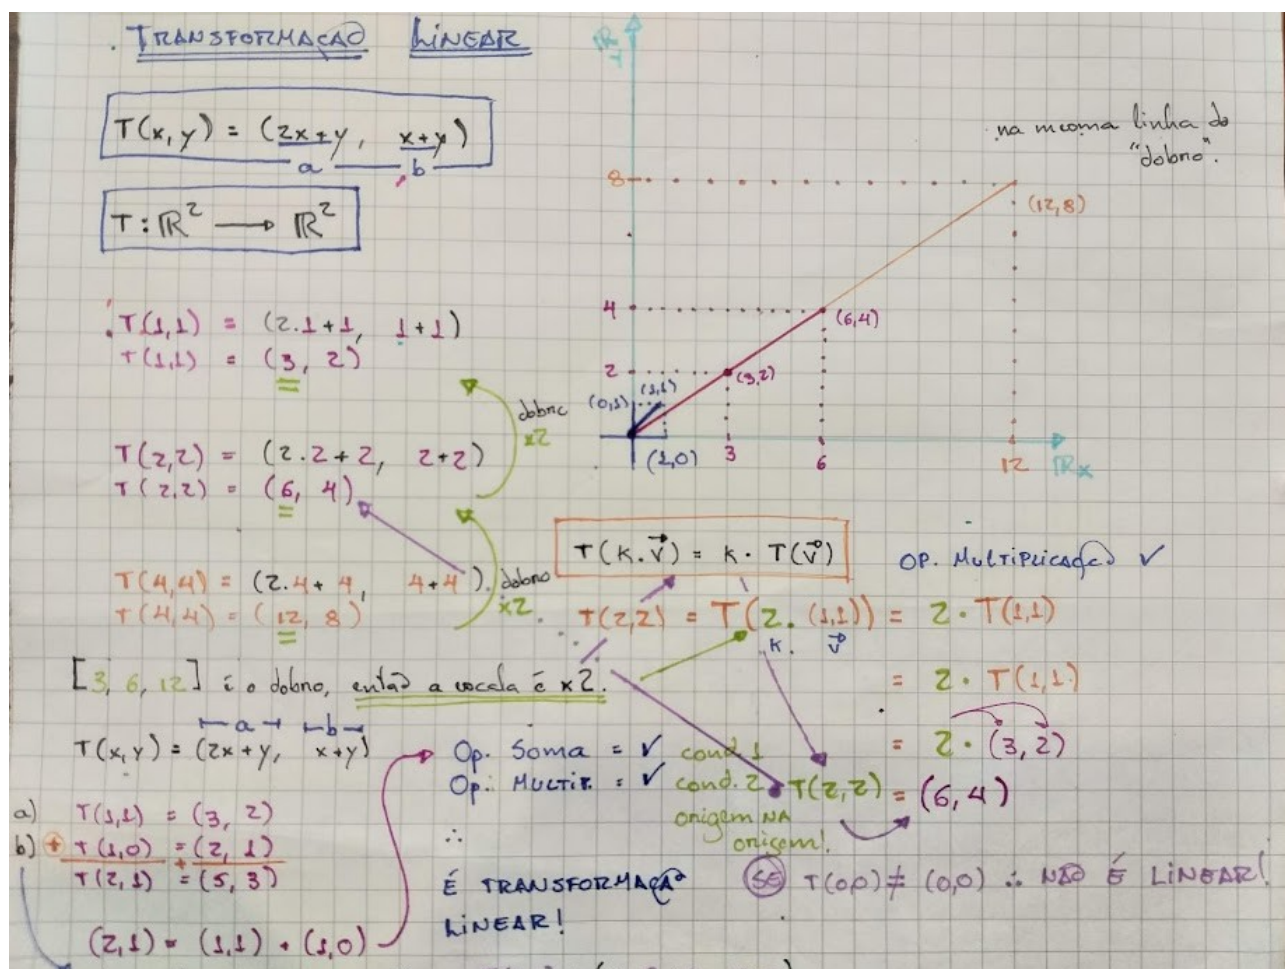 . TRANSFORMAÇÃO LINEAR
T(x, y) = (2x+y, x+y)
a b
T : ℝ² → ℝ²
T(1,1) = (2.1+1, 1+1)
T(1,1) = (3, 2)
dobro
x2
T(2,2) = (2.2+2, 2+2)
T(2,2) = (6, 4)
T(4,4) = (2.4+4, 4+4).
T(4,4) = (12, 8)
dobro
x2.
[3, 6, 12] é o dobro, então a escala é x2.
a b
T(x,y) = (2x+y, x+y)
a) T(1,1) = (3, 2)
b) + T(1,0) = (2, 1)
T(2,1) + = (5, 3)
(2,1) = (1,1) + (1,0)
ℝ y
na mesma linha do
"dobro".
8
(12,8)
4
(6,4)
2
(3,2)
(0,1) (1,1)
(1,0) 3 6 12 ℝx
T(k.v⃗) = k · T(v⃗) OP. MULTIPLICAÇÃO ✓
T(2,2) = T(2. (1,1)) = 2 · T(1,1)
k. v⃗
= 2 · T(1,1)
= 2 · (3, 2)
T(2,2) = (6, 4)
Op. SOMA = ✓ cond 1
Op. MULTIP. = ✓ cond. 2
origem NA
origem!
∴
É TRANSFORMAÇÃO
LINEAR!
SE T(0,0) ≠ (0,0) ∴ NÃO É LINEAR!